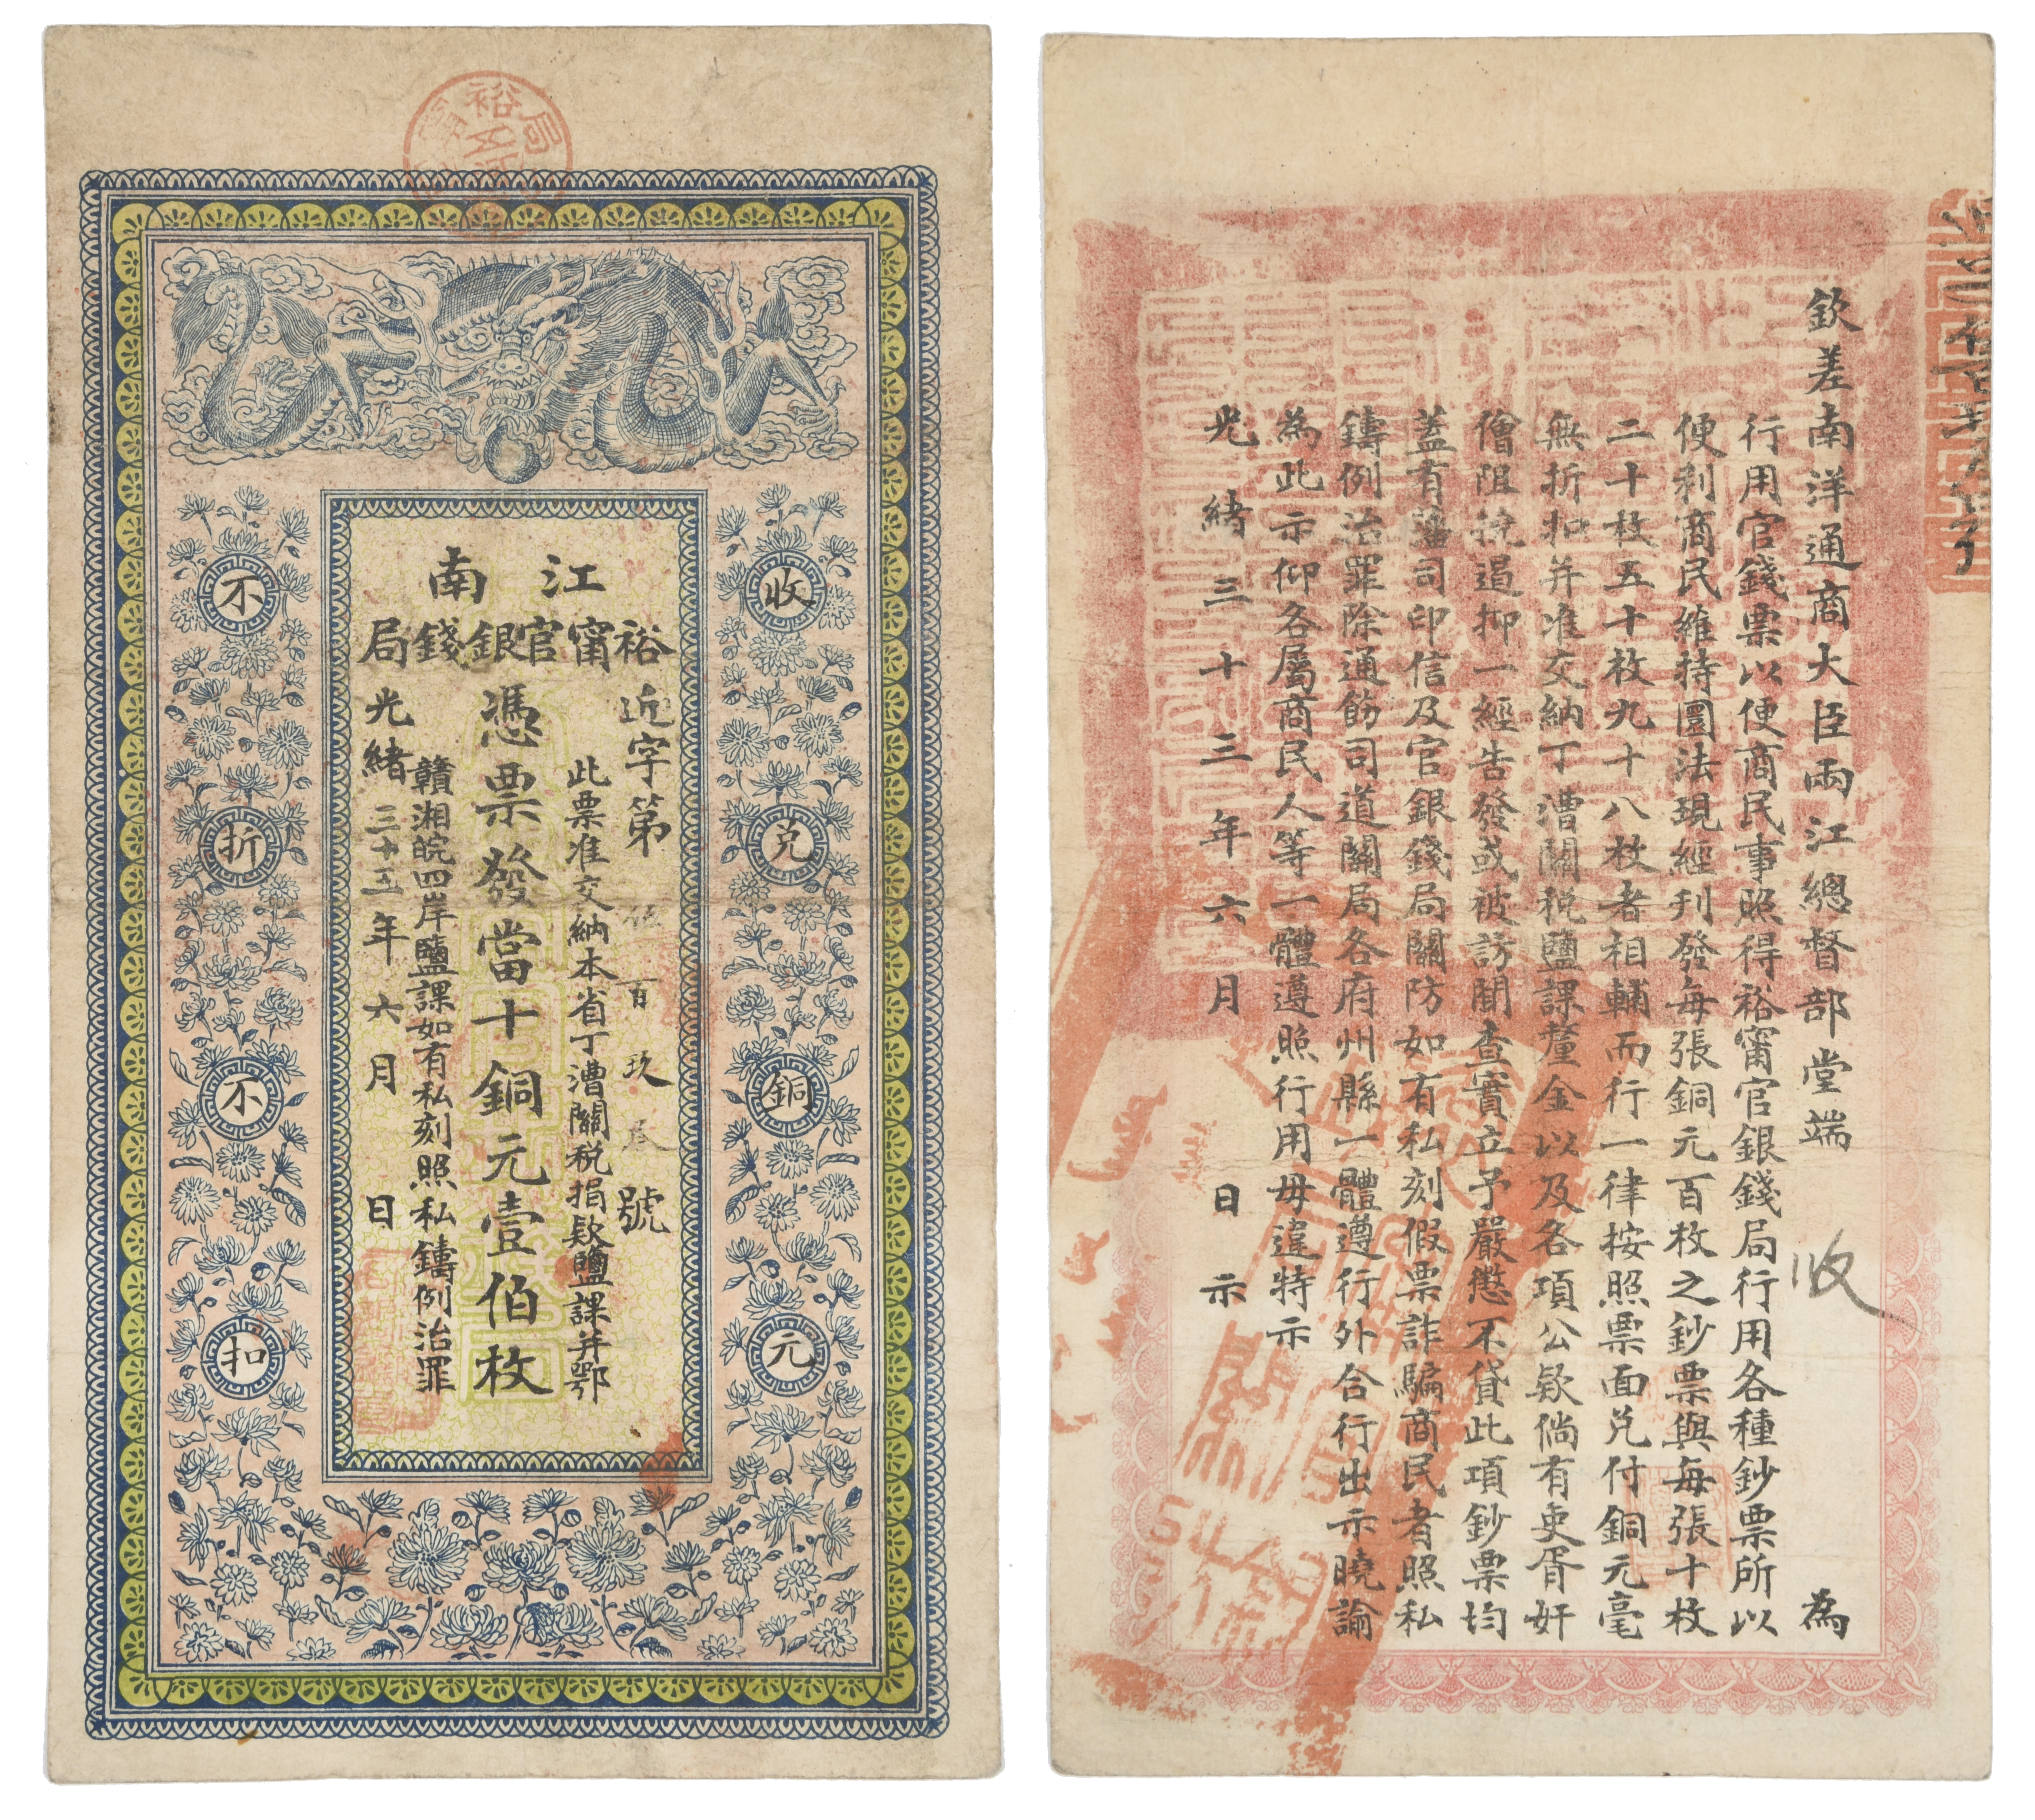 江南
裕甯官銀錢局
近字第 百玖 號
此票准交納本省丁漕關稅捐欵鹽課并鄂
憑票發當十銅元壹伯枚
贛湘皖四岸鹽課如有私刻照私鑄例治罪
光緒三十五年六月日
收兌銅元
不折不扣
欽差南洋通商大臣兩江總督部堂端 為
行用官錢票以便商民事照得裕甯官銀錢局行用各種鈔票所以
便利商民維持圜法現經刊發每張銅元百枚之鈔票與每張十枚
二十枚五十枚九十八枚者相輔而行一律按照票面兌付銅元毫
無折扣并准交納丁漕關稅鹽課釐金以及各項公欵倘有吏胥奸
儈阻撓遏抑一經告發或被訪聞查實立予嚴懲不貸此項鈔票均
蓋有藩司印信及官銀錢局關防如有私刻假票詐騙商民者照私
鑄例治罪除通飭司道關局各府州縣一體遵行外合行出示曉諭
為此示仰各屬商民人等一體遵照行用毋違特示
光緒三十三年六月 日示
收